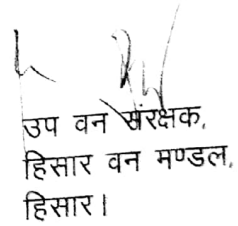 उप वन संरक्षक,
हिसार वन मण्डल,
हिसार।